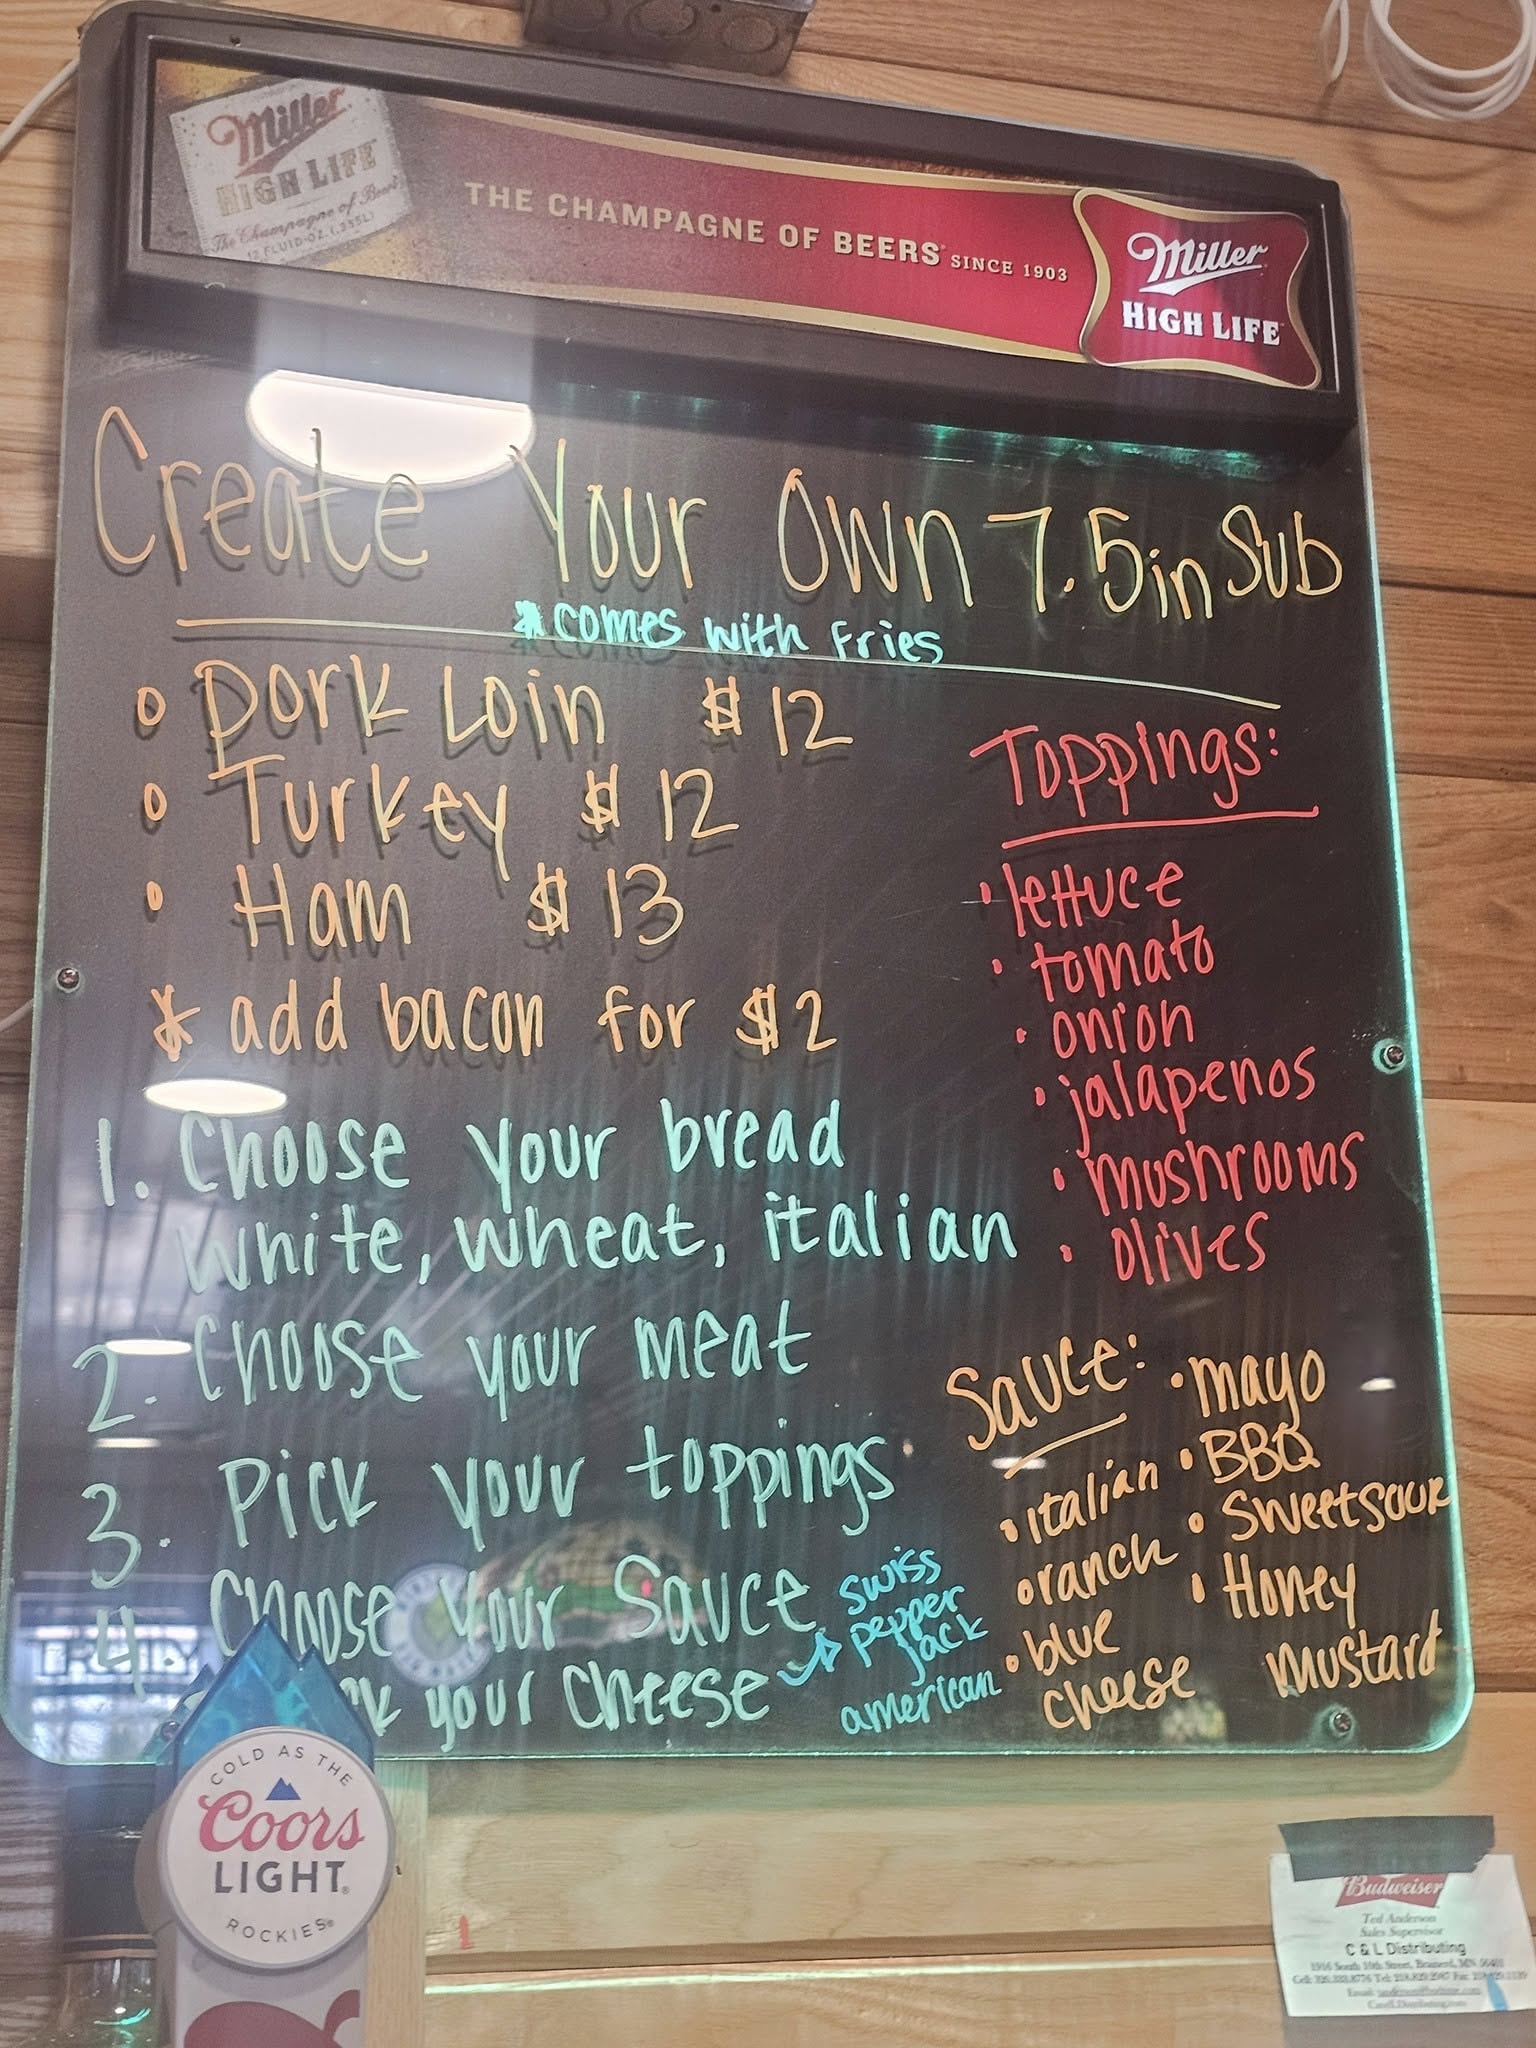 Miller
HIGH LIFE
The Champagne of Beers
12 FLUID OZ. (.355L)
THE CHAMPAGNE OF BEERS SINCE 1903
Miller
HIGH LIFE
Create Your Own 7.5in Sub
*comes with fries
Pork Loin $12
Turkey $12
Ham $13
* add bacon for $2
1. Choose your bread
white, wheat, italian
2. Choose your meat
3. Pick your toppings
4 Choose your Sauce
your cheese
swiss
pepper
jack
american
Toppings:
• lettuce
• tomato
• onion
• jalapenos
• mushrooms
• olives
Sauce:
• italian
• ranch
• blue
cheese
• mayo
• BBQ
• Sweetsour
• Honey
mustard
COLD AS THE
Coors
LIGHT®
ROCKIES®
Budweiser
Ted Anderson
Sales Supervisor
C & L Distributing
1916 South 10th Street, Brainerd, MN 56401